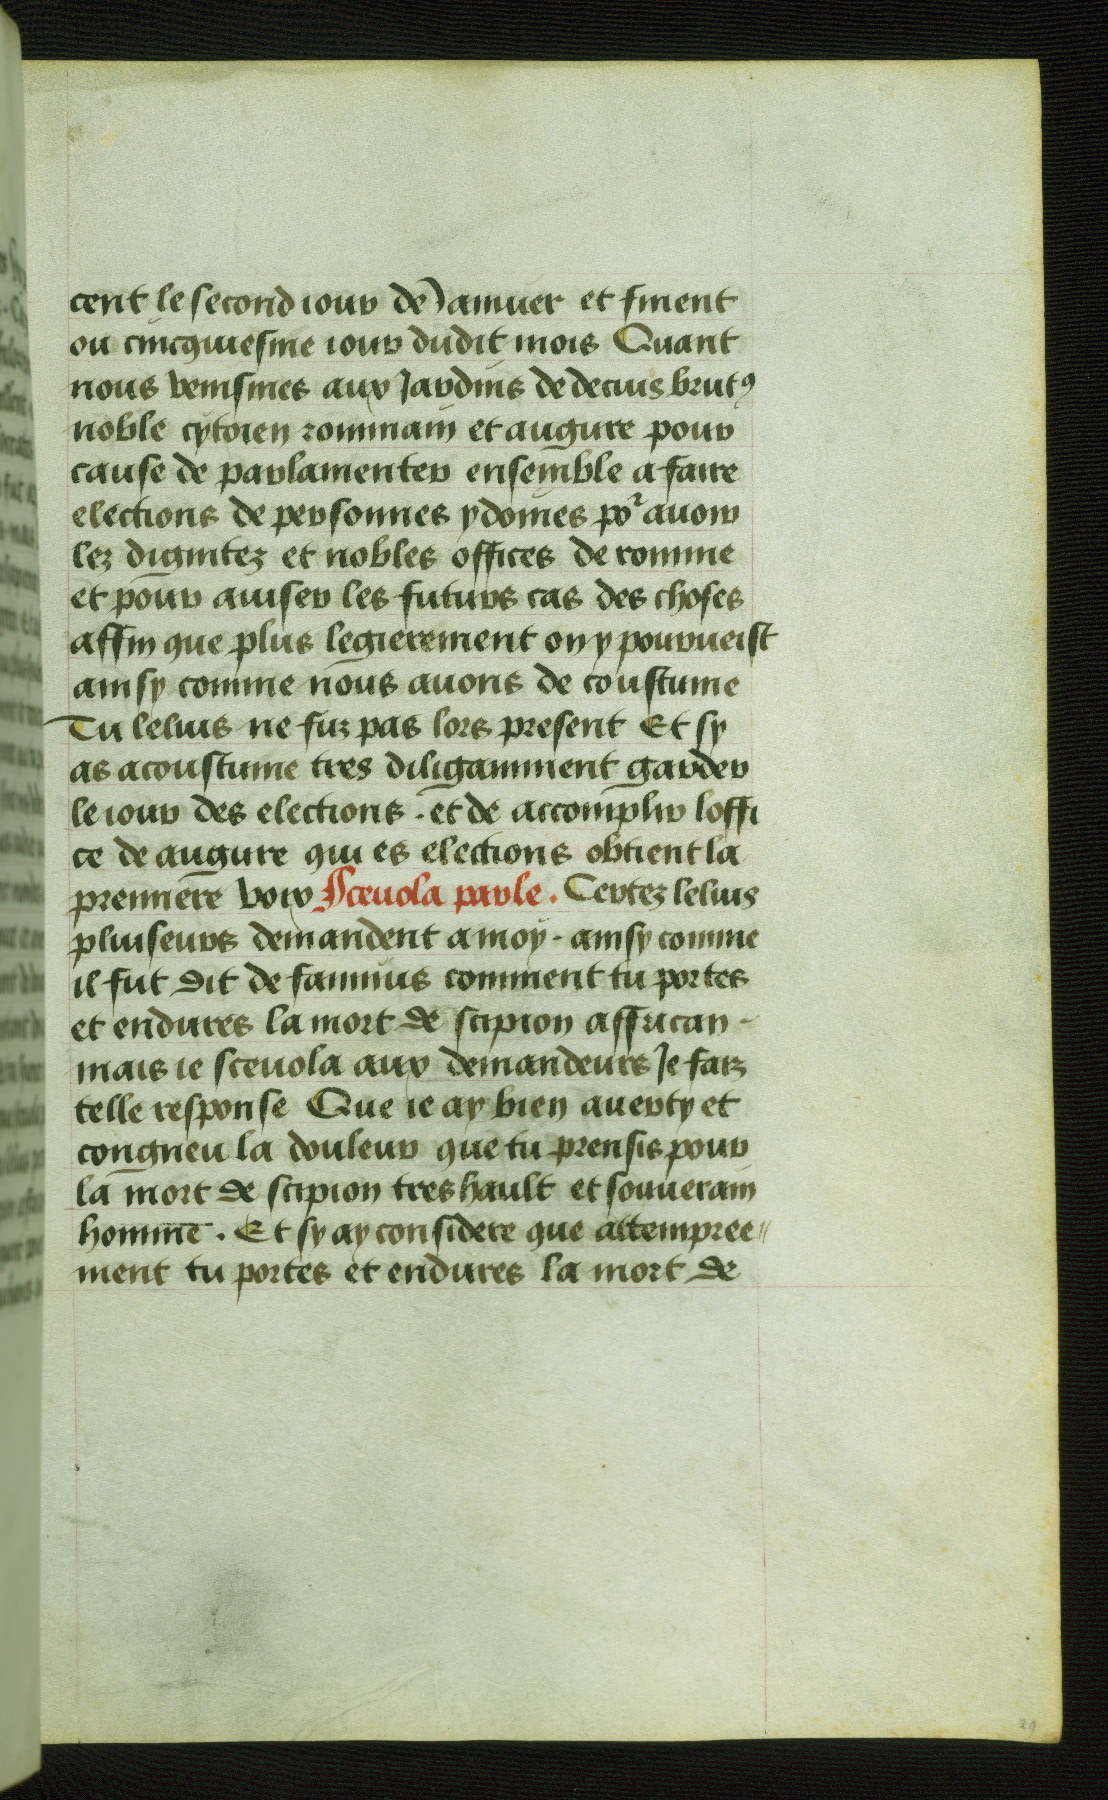 cent le second iour de Januier et finent
ou cincquiesme iour dudit mois Quant
nous venismes aux Jardins de decius brutꝰ
noble cytoien rommain et augure pour
cause de parlamenter ensemble a faire
elections de personnes ydoines poʳ auoir
lez dignitez et nobles offices de romme
et pour auiser les futurs cas des choses
affin que plus legierement on y pourueist
ainsy comme nous auons de coustume
Tu lelius ne fuz pas lors present Et sy
as acoustume tres diligamment garder
le iour des elections . et de accomplir loffi
ce de augure qui es elections obtient la
premiere voix Sceuola parle . Certez lelius
pluiseurs demandent a moy . ainsy comme
il fut dit de fannius comment tu portes
et endures la mort de scipion affrican .
mais ie sceuola aux demandeurs Je faiz
telle response Que ie ay bien auerty et
congneu la douleur que tu prensis pour
la mort de scipion tres hault et souuerain
homme . Et sy ay considere que attempree〃
ment tu portes et endures la mort de
29